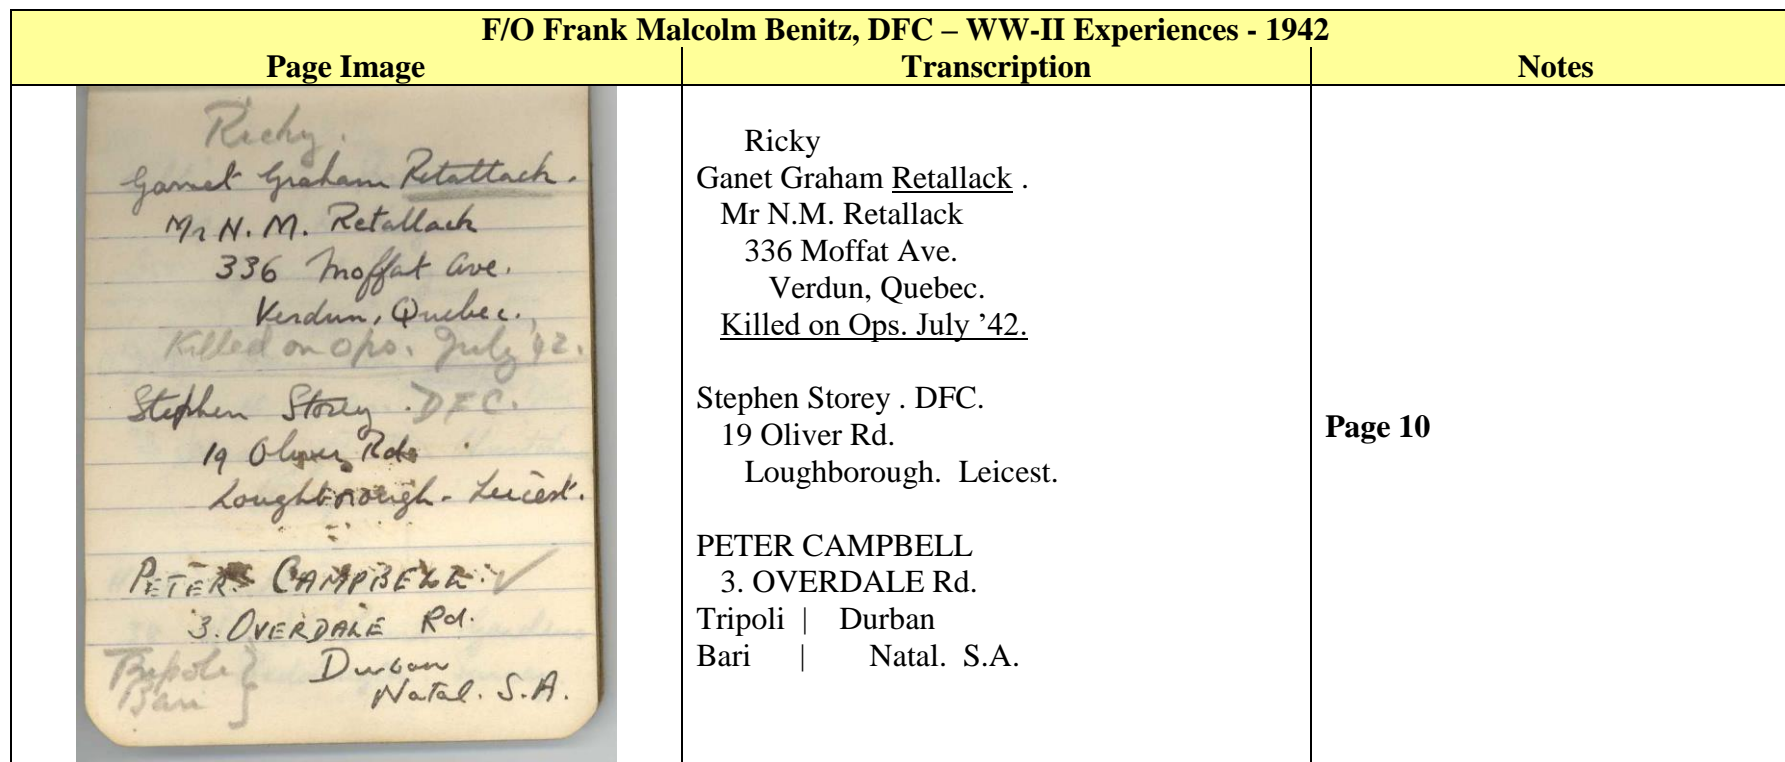 F/O Frank Malcolm Benitz, DFC – WW-II Experiences - 1942
Page Image
Transcription
Notes
Ricky.
Garnet Graham Retallack.
Mr N. M. Retallack
336 Moffat Ave.
Verdun, Quebec.
Killed on Ops. July '42.
Stephen Storey . DFC.
19 Oliver Rd.
Loughborough - Leicest.
PETER CAMPBELL. ✓
3. OVERDALE Rd.
Tripoli } Durban
Bari } Natal. S.A.
Ricky
Ganet Graham Retallack .
Mr N.M. Retallack
336 Moffat Ave.
Verdun, Quebec.
Killed on Ops. July ’42.
Stephen Storey . DFC.
19 Oliver Rd.
Loughborough. Leicest.
PETER CAMPBELL
3. OVERDALE Rd.
Tripoli | Durban
Bari | Natal. S.A.
Page 10